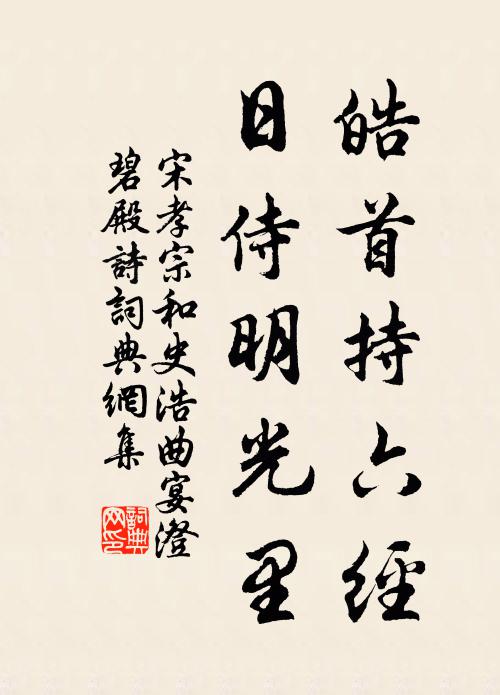 皓首持六經
日侍明光里
宋孝宗和史浩曲宴澄
碧殿詩詞典網集
詞典网印